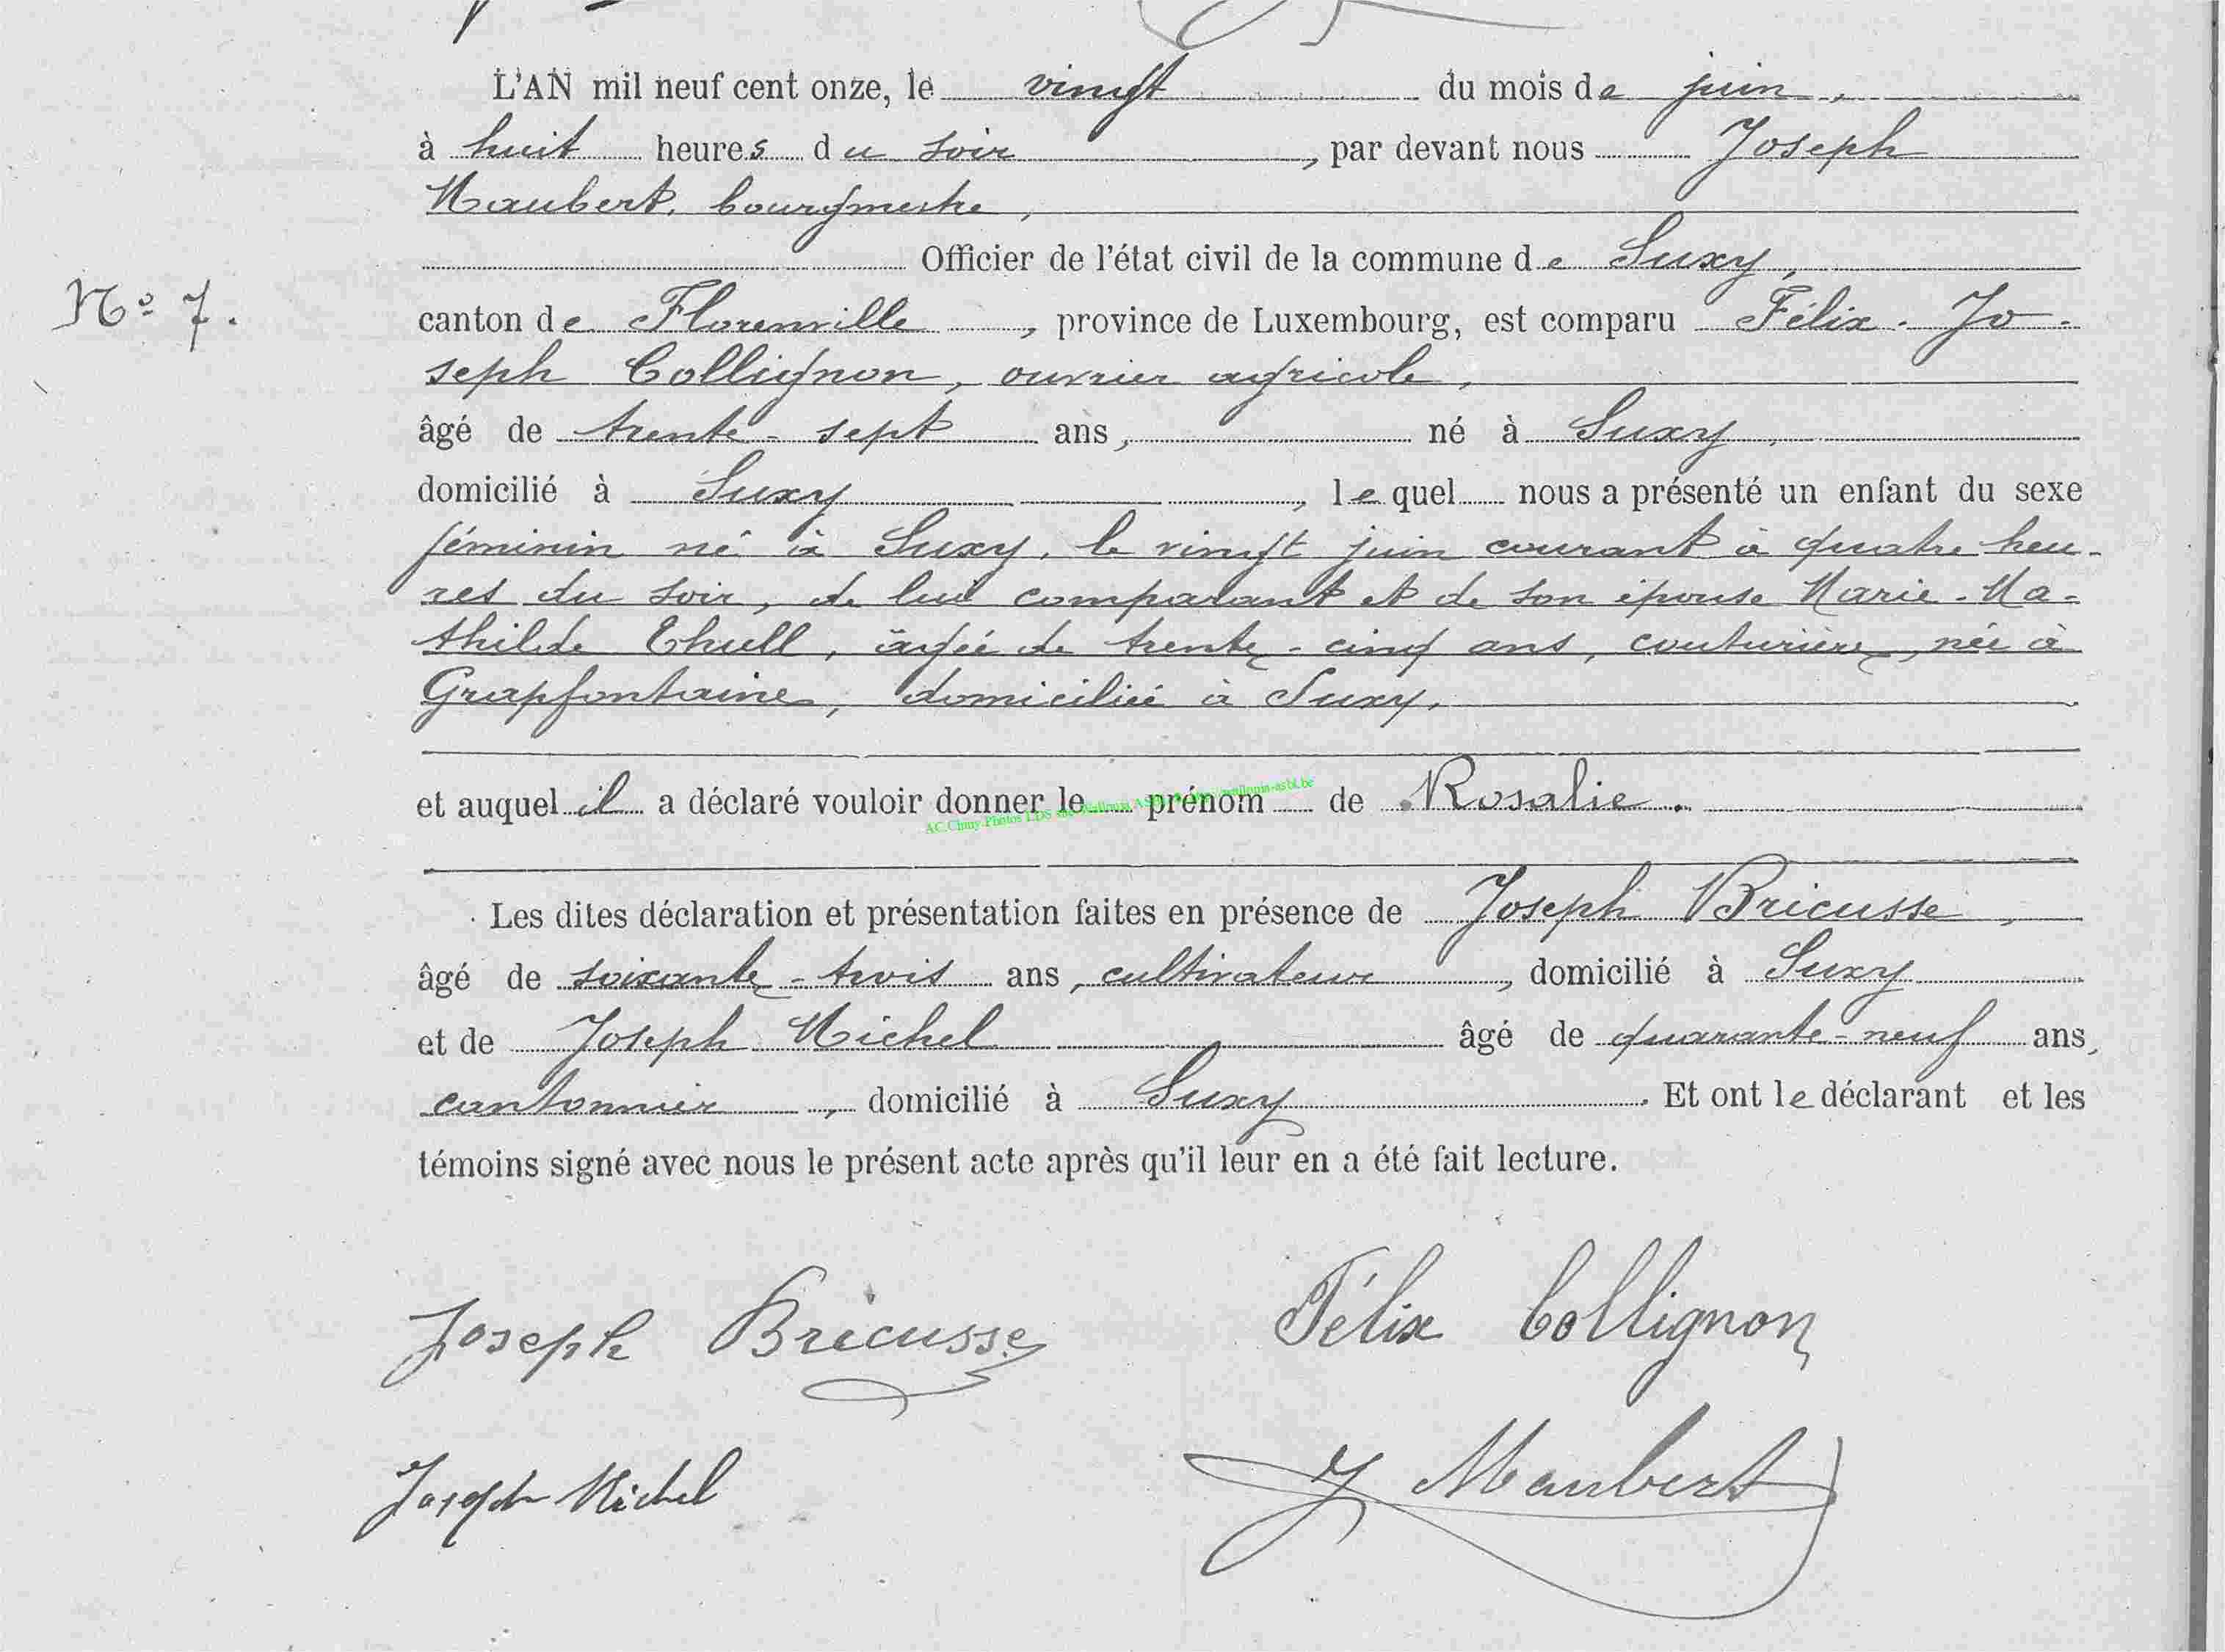 L'AN mil neuf cent onze, le vingt du mois de juin,
à huit heures du soir, par devant nous Joseph
Maubert, bourgmestre,
Officier de l'état civil de la commune de Suxy,
N° 7.
canton de Florenville, province de Luxembourg, est comparu Félix-Jo-
seph Collignon, ouvrier agricole,
âgé de trente-sept ans, né à Suxy,
domicilié à Suxy, lequel nous a présenté un enfant du sexe
féminin né à Suxy, le vingt juin courant à quatre heu-
res du soir, de lui comparant et de son épouse Marie-Ma-
thilde Thull, âgée de trente-cinq ans, couturière, née à
Grapfontaine, domiciliée à Suxy.
et auquel il a déclaré vouloir donner le prénom de Rosalie.
AC.Cluny Photos LDS
Les dites déclaration et présentation faites en présence de Joseph Bricusse,
âgé de soixante-trois ans, cultivateur, domicilié à Suxy
et de Joseph Michel âgé de quarante-neuf ans,
cantonnier, domicilié à Suxy. Et ont le déclarant et les
témoins signé avec nous le présent acte après qu'il leur en a été fait lecture.
Joseph Bricusse Félix Collignon
Joseph Michel J Maubert